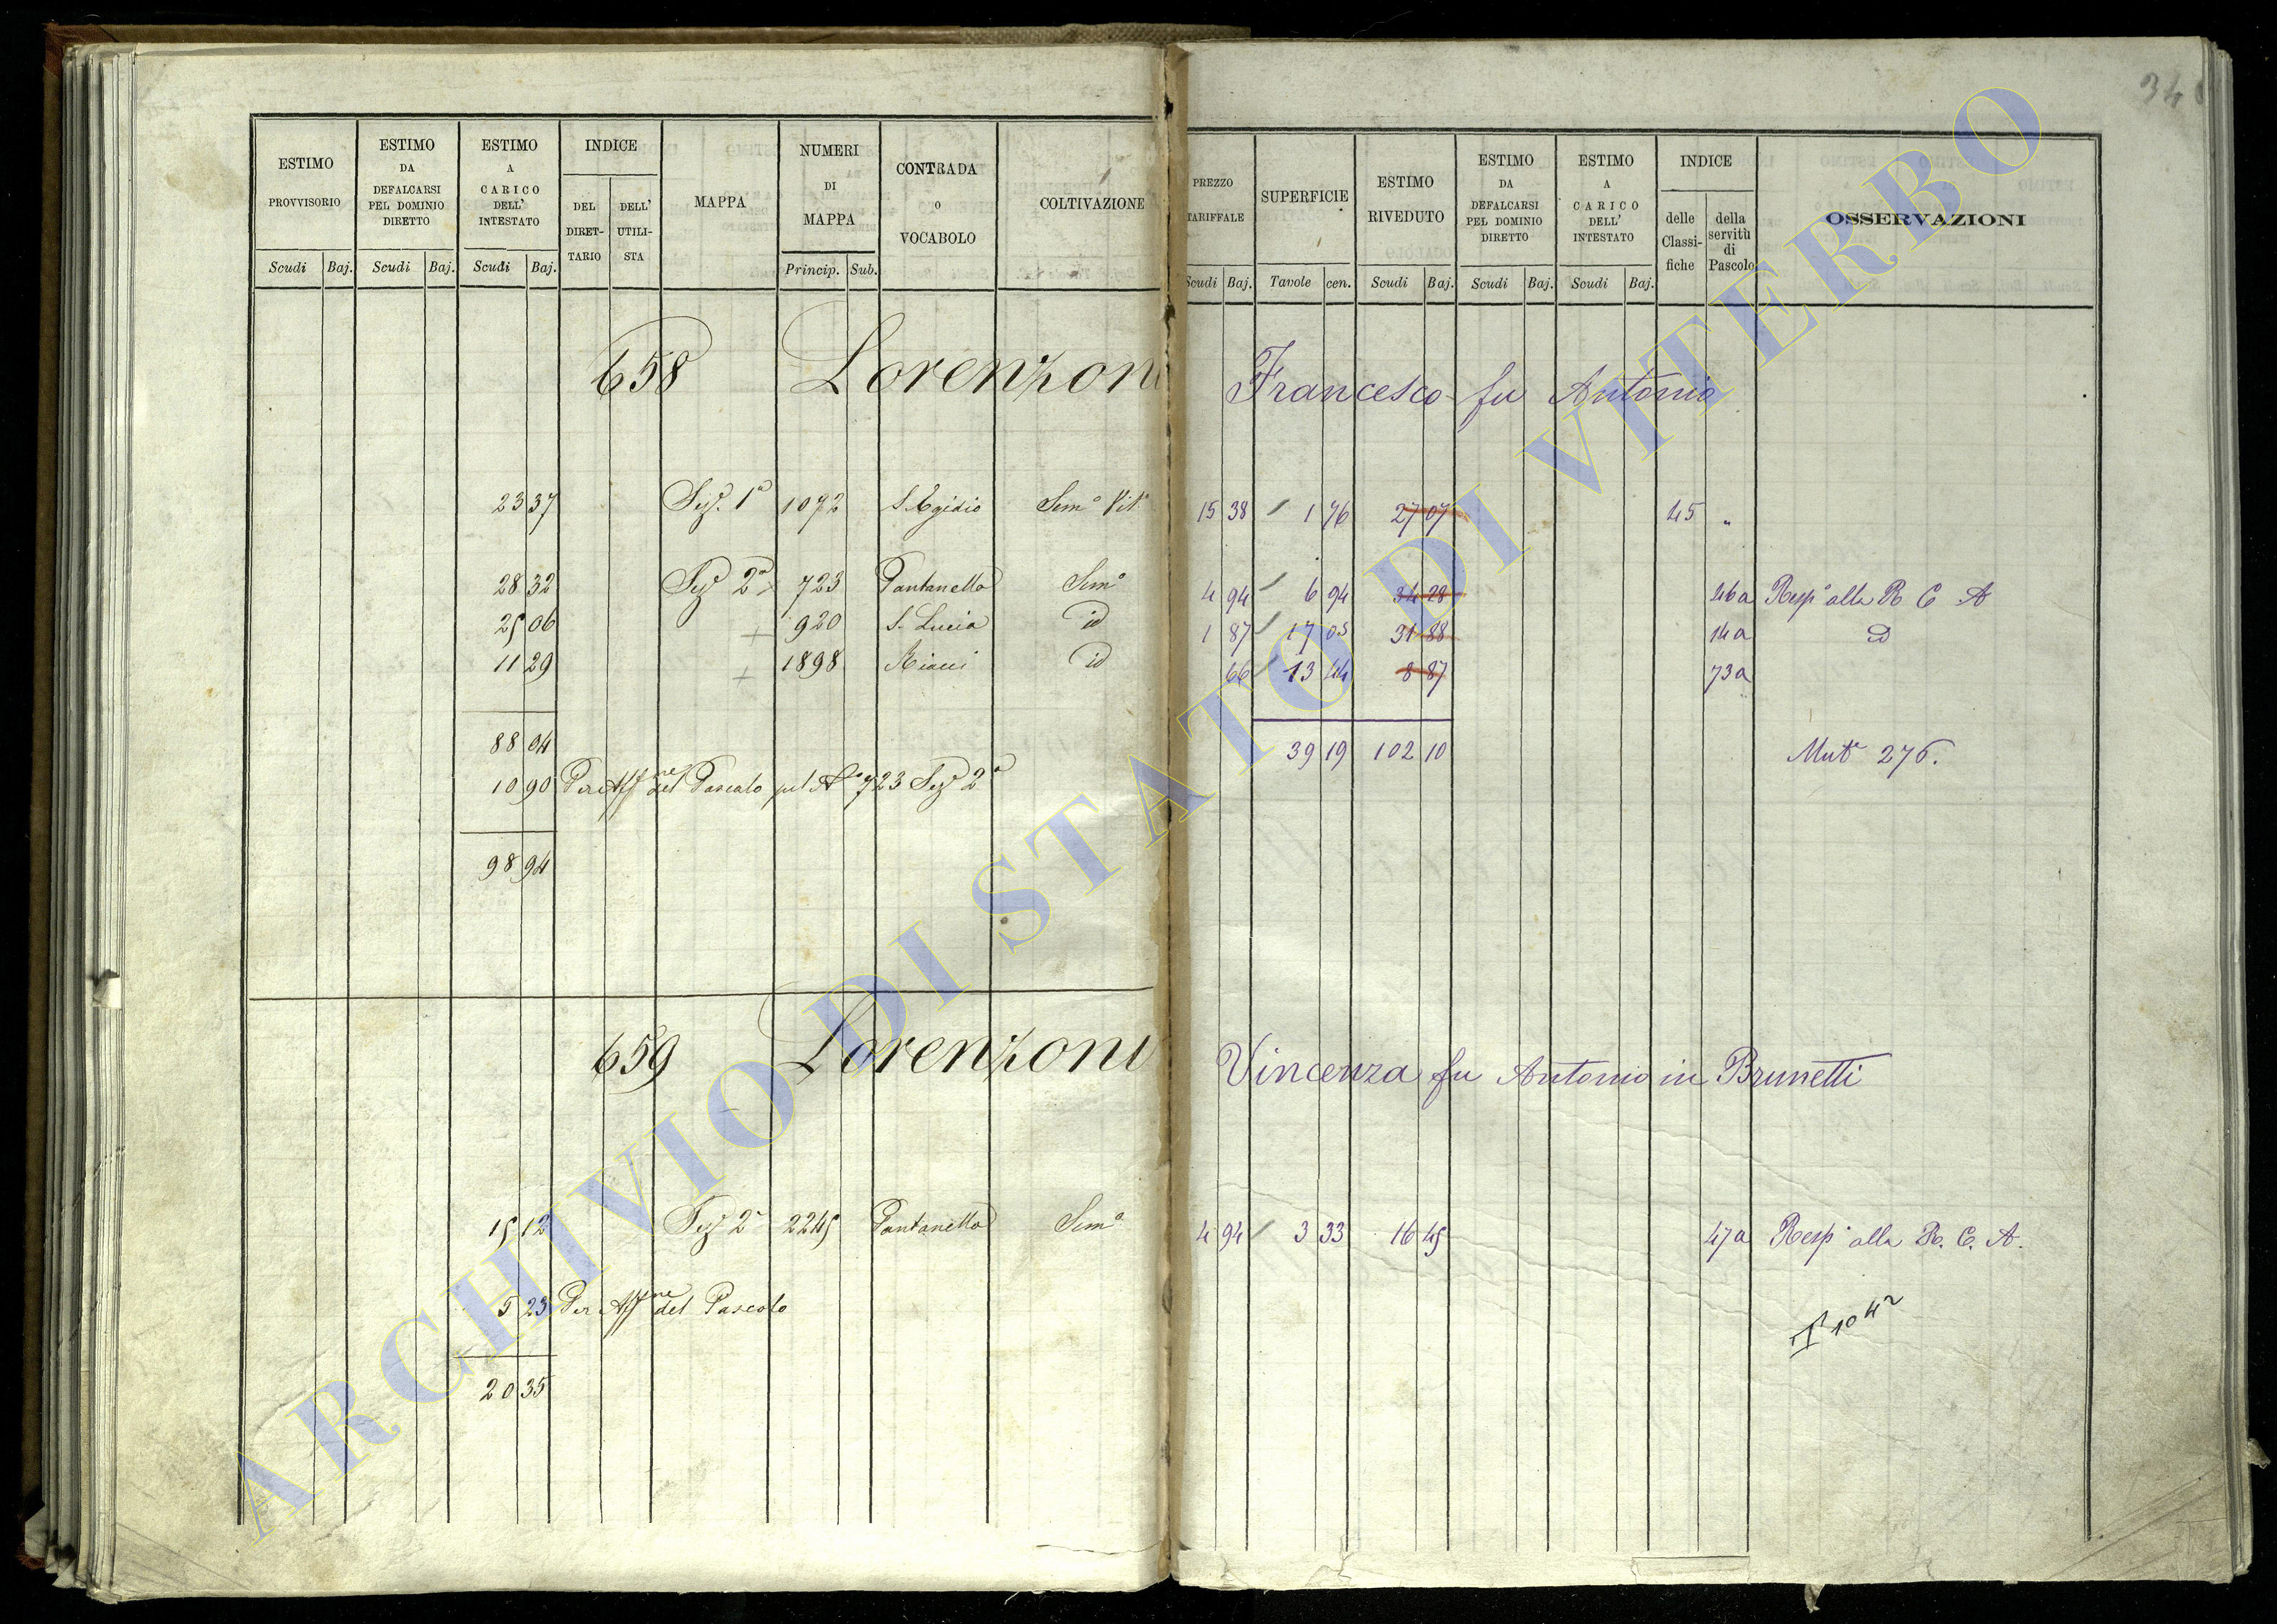 34
ESTIMO PROVVISORIO
ESTIMO DA DEFALCARSI PEL DOMINIO DIRETTO
ESTIMO A CARICO DELL' INTESTATO
INDICE
DEL DIRET-TARIO
DELL' UTILI-STA
MAPPA
NUMERI DI MAPPA
CONTRADA o VOCABOLO
COLTIVAZIONE
Scudi Baj. Scudi Baj. Scudi Baj. Princip. Sub.
PREZZO TARIFFALE
SUPERFICIE
ESTIMO RIVEDUTO
ESTIMO DA DEFALCARSI PEL DOMINIO DIRETTO
ESTIMO A CARICO DELL' INTESTATO
INDICE
delle Classi-fiche
della servitù di Pascolo
OSSERVAZIONI
Scudi Baj. Tavole cen. Scudi Baj. Scudi Baj. Scudi Baj.
658 Lorenzoni Francesco fu Antonio
23 37 Sez. 1ª 1072 S. Egidio Sem° Vit° 15 38 1 76 27 07 45 "
28 32 Sez 2ª 723 Pantanella Sem° 4 94 6 94 34 28 46a Resp° alla R C A
25 06 + 920 S. Lucia id 1 87 17 05 31 88 14a id
11 29 + 1898 Riacci id 66 13 44 8 87 73a
88 04 39 19 102 10 Mut° 276.
10 90 Per Aff ne del Pascolo pel N° 723 Sez 2ª
98 94
659 Lorenzoni Vincenza fu Antonio in Brunetti
15 12 Sez 2ª 2245 Pantanella Sem° 4 94 3 33 16 45 47a Resp° alla R. C. A.
5 23 Per Aff ne del Pascolo
20 35
ARCHIVIO DI STATO DI VITERBO